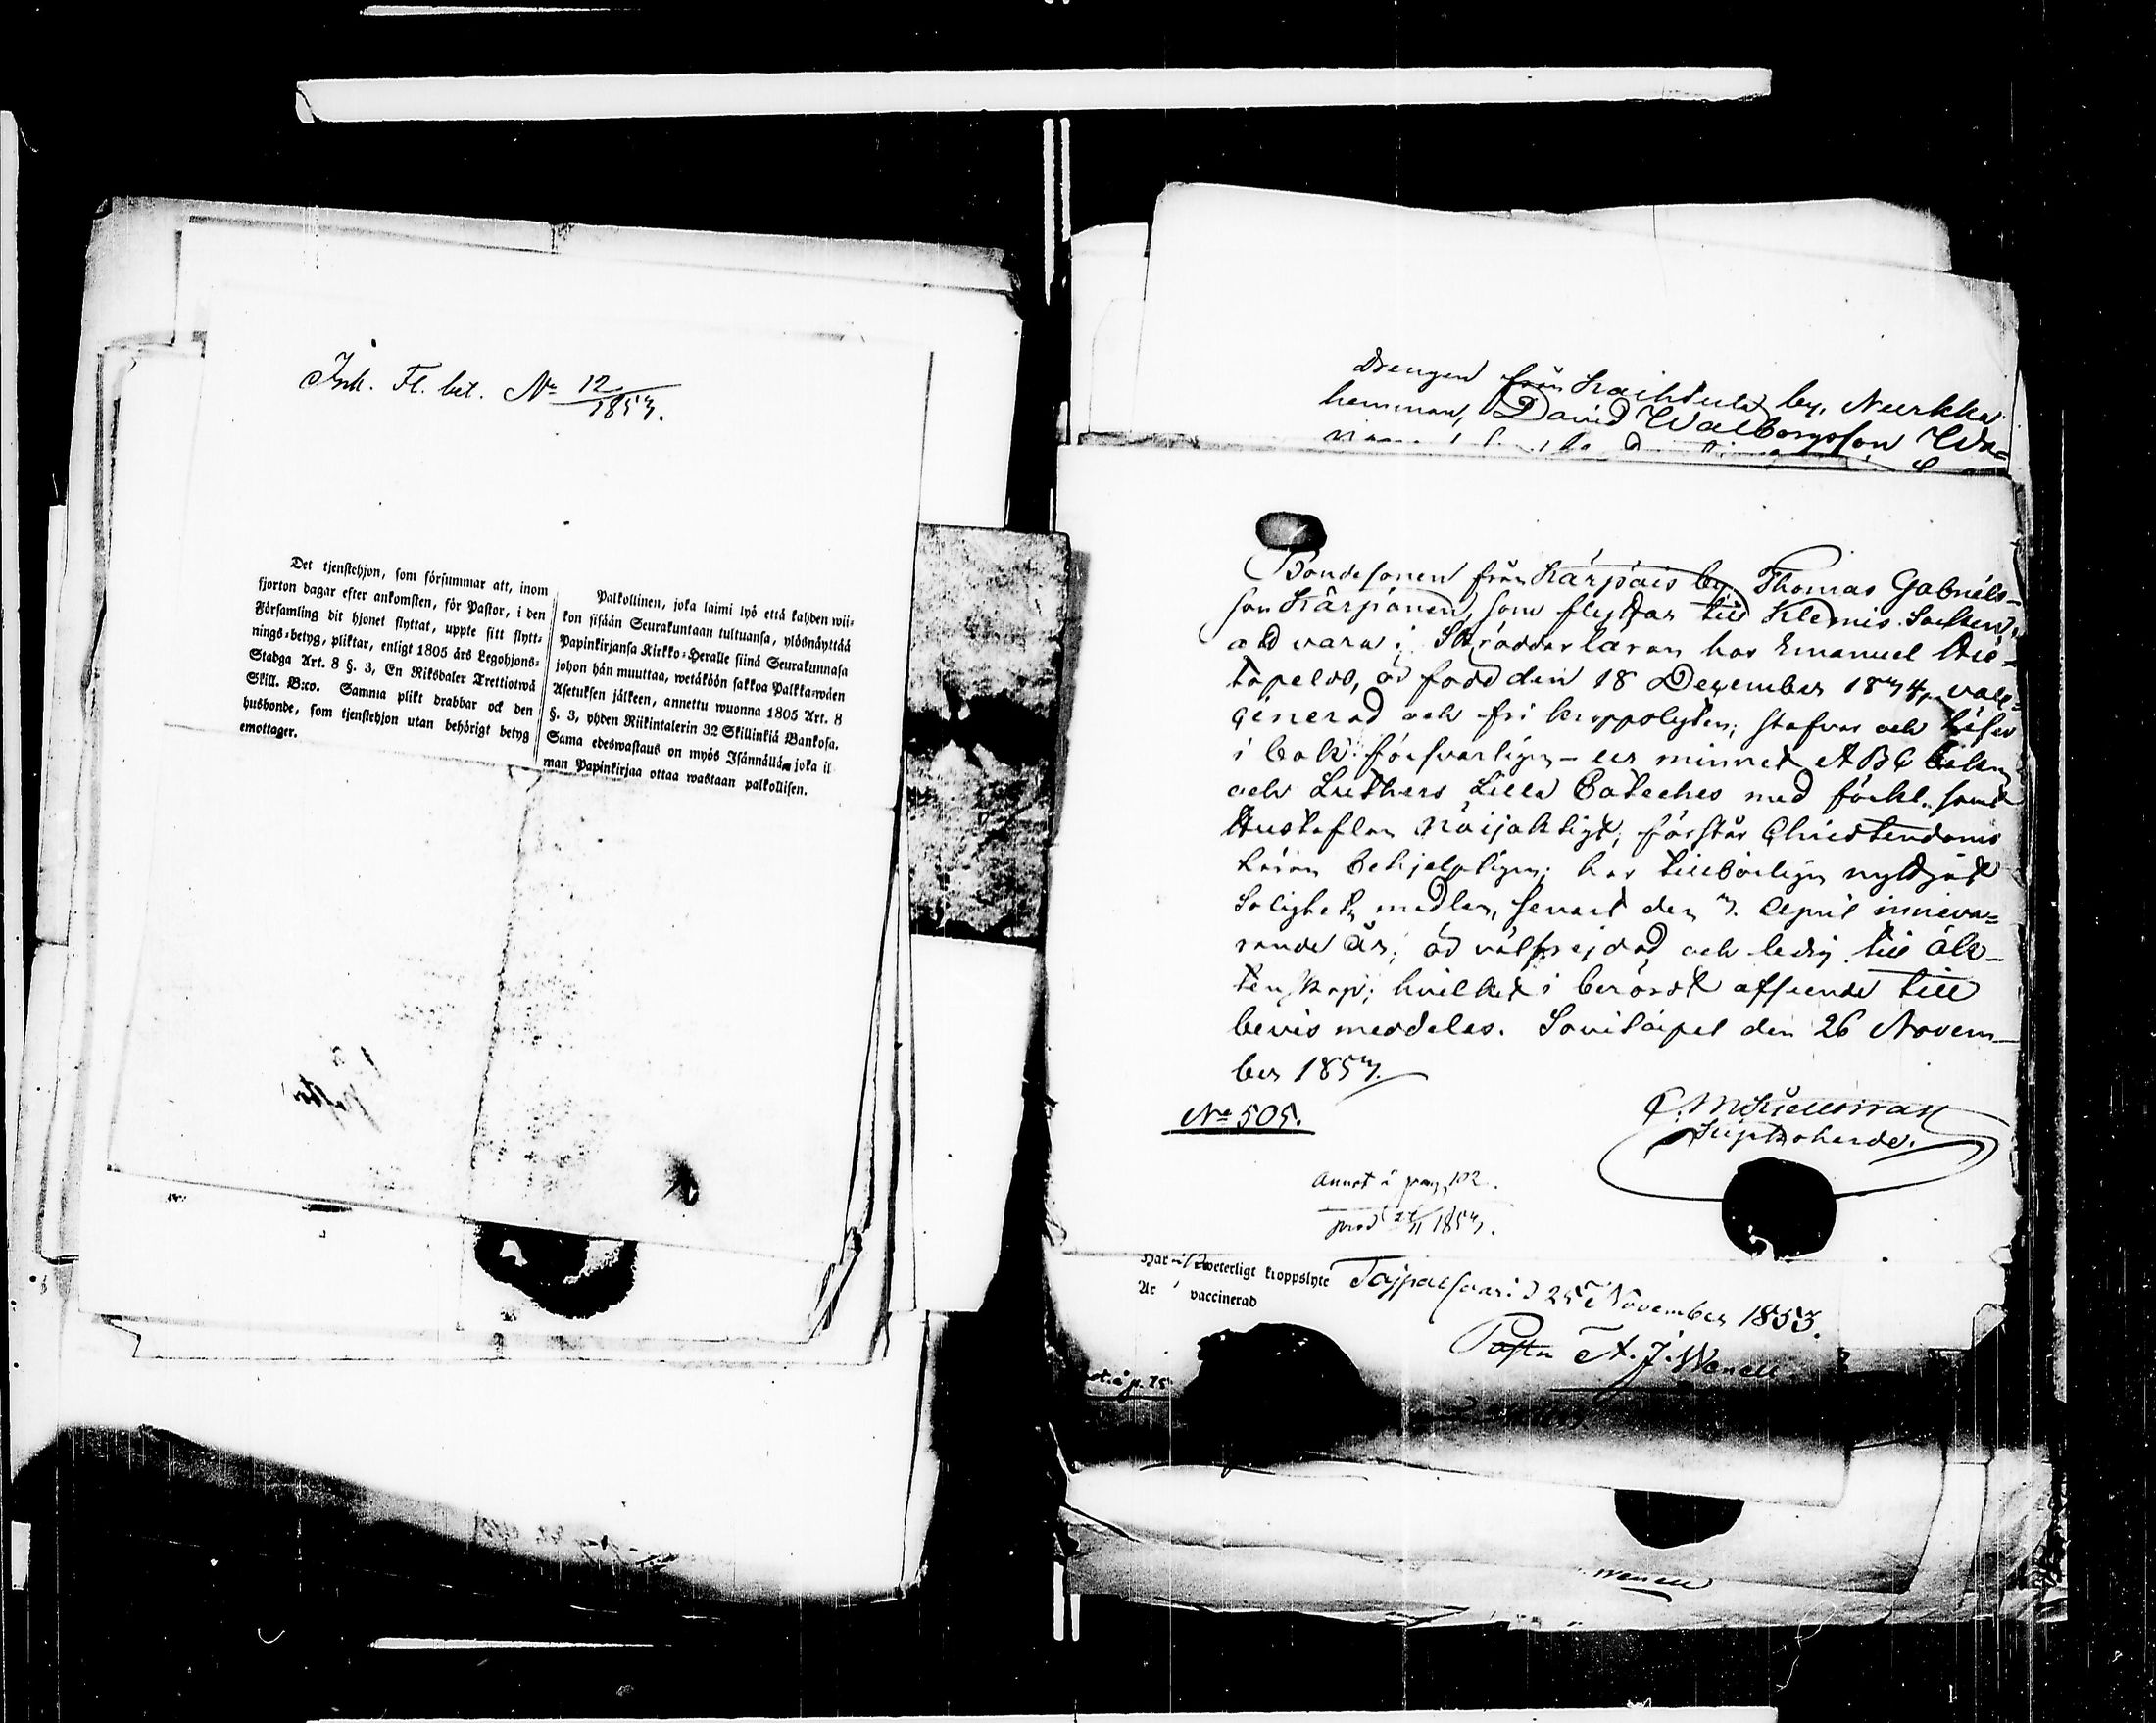 Ink. Fl. bet. No 12/1853.
Det tjenstehjon, som försummar att, inom
fjorton dagar efter ankomsten, för Pastor, i den
Församling dit hjonet flyttat, uppte sitt flytt-
nings-betyg, pliktar, enligt 1805 års Legohjons-
Stadga Art. 8 §. 3, En Riksdaler Trettiotwå
Skill. B:co. Samma plikt drabbar ock den
husbonde, som tjenstehjon utan behörigt betyg
emottager.
Palkollinen, joka laimi lyö että kahden wii-
kon sisään Seurakuntaan tultuansa, ylösnäyttää
Papinkirjansa Kirkko-Heralle siinä Seurakunnasa
johon hän muuttaa, wetäköön sakkoa Palkkawäen
Asetuksen jälkeen, annettu wuonna 1805 Art. 8
§. 3, yhden Riikintalerin 32 Skillinkiä Bankosa.
Sama edeswastaus on myös Isännällä, joka il
man Papinkirjaa ottaa wastaan palkollisen.
Drengen från Kaihtula by, Nurkka
hemman, David Walborgsson Wa=
Bondesonen från Kärpäis by Thomas Gabriels-
son Kärpänen, som flyttar till Klemis Socken,
att vara i Skräddarläran hos Emanuel
är född den 18 December 1834, vac-
cinerad och fri kroppslyten; stafvar och läser
i bok försvarligen - ur minnet ABC boken
och Luthers Lilla Cateches med förkl. samt
Hustaflan nöijaktigt; förstår Christendoms
läran behjelpligen; har tillbörligen nyttjat
Salighets medlen, senast den 3. April inneva=
rande år; är välfrejdad och ledig till äk-
tenskap; hvilket i berördt afseende till
bevis meddelas. Savitaipal den 26 Novem-
ber 1853.
No 505.
Annot å pag. 102.
prod 27/11 1853.
Har weterligt kroppslyte
Är vaccinerad
Taipalsaari d 25 November 1853.
Pastor A. J. Wenell
p. 75
Wenell